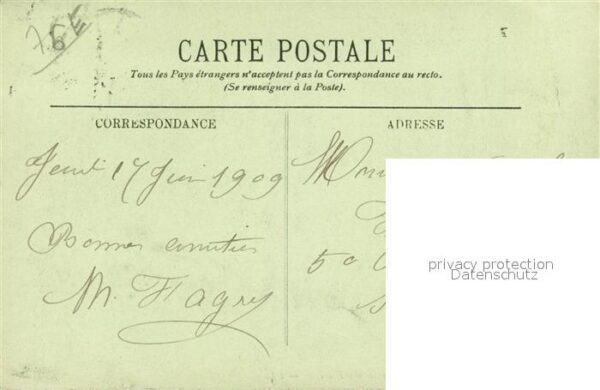 76 E
CARTE POSTALE
Tous les Pays étrangers n'acceptent pas la Correspondance au recto.
(Se renseigner à la Poste).
CORRESPONDANCE
Jeudi 17 Juin 1909
Bonnes amitiés
M.
ADRESSE
50
privacy protection
Datenschutz